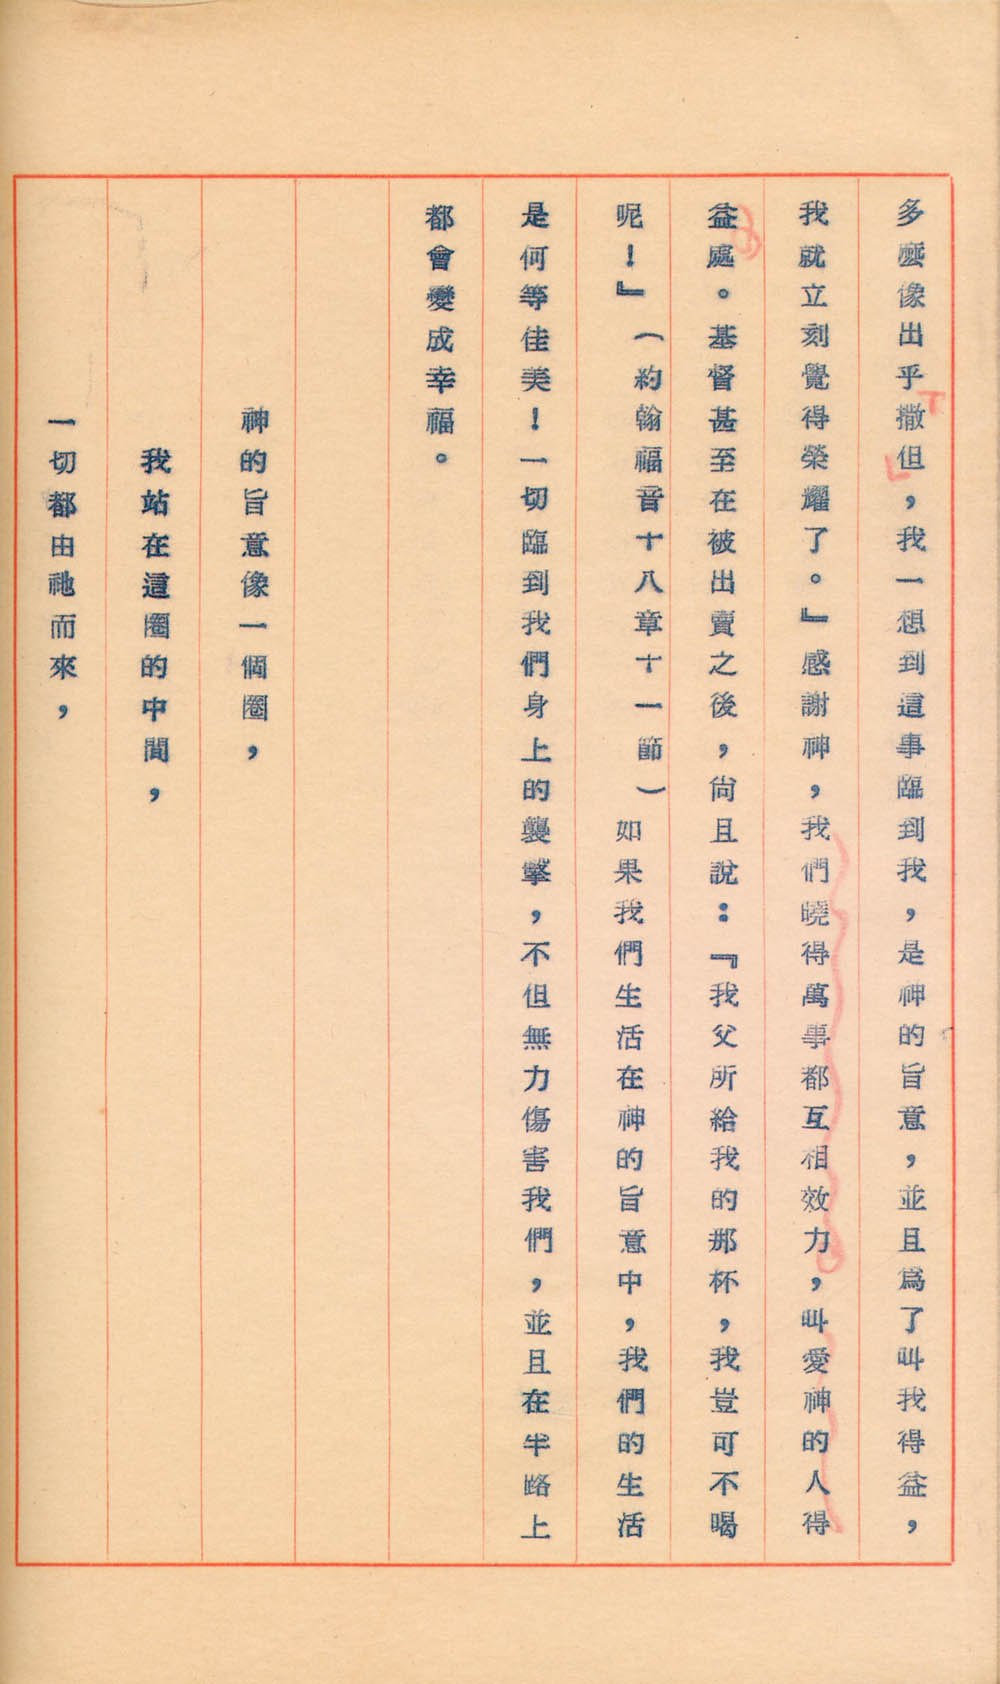 多麼像出乎撒但，我一想到這事臨到我，是神的旨意，並且爲了叫我得益，
我就立刻覺得榮耀了。』感謝神，我們曉得萬事都互相效力，叫愛神的人得
益處。基督甚至在被出賣之後，尙且說：『我父所給我的那杯，我豈可不喝
呢！』（約翰福音十八章十一節）如果我們生活在神的旨意中，我們的生活
是何等佳美！一切臨到我們身上的襲擊，不但無力傷害我們，並且在半路上
都會變成幸福。
神的旨意像一個圈，
我站在這圈的中間，
一切都由祂而來，